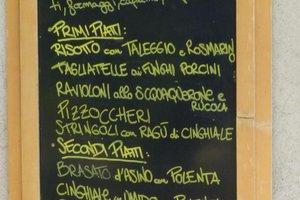 ti, formaggi,
PRIMI PIATTI:
RISOTTO con TALEGGIO e ROSMARIN
TAGLIATELLE ai FUNGHI PORCINI
RAVIOLONI allo SCQUAQUERONE e
RUCOLA
PIZZOCCHERI
STRINGOLI con RAGÙ di CINGHIALE
SECONDI PIATTI:
BRASATO d'ASINO con POLENTA
CINGHIALE in UMIDO